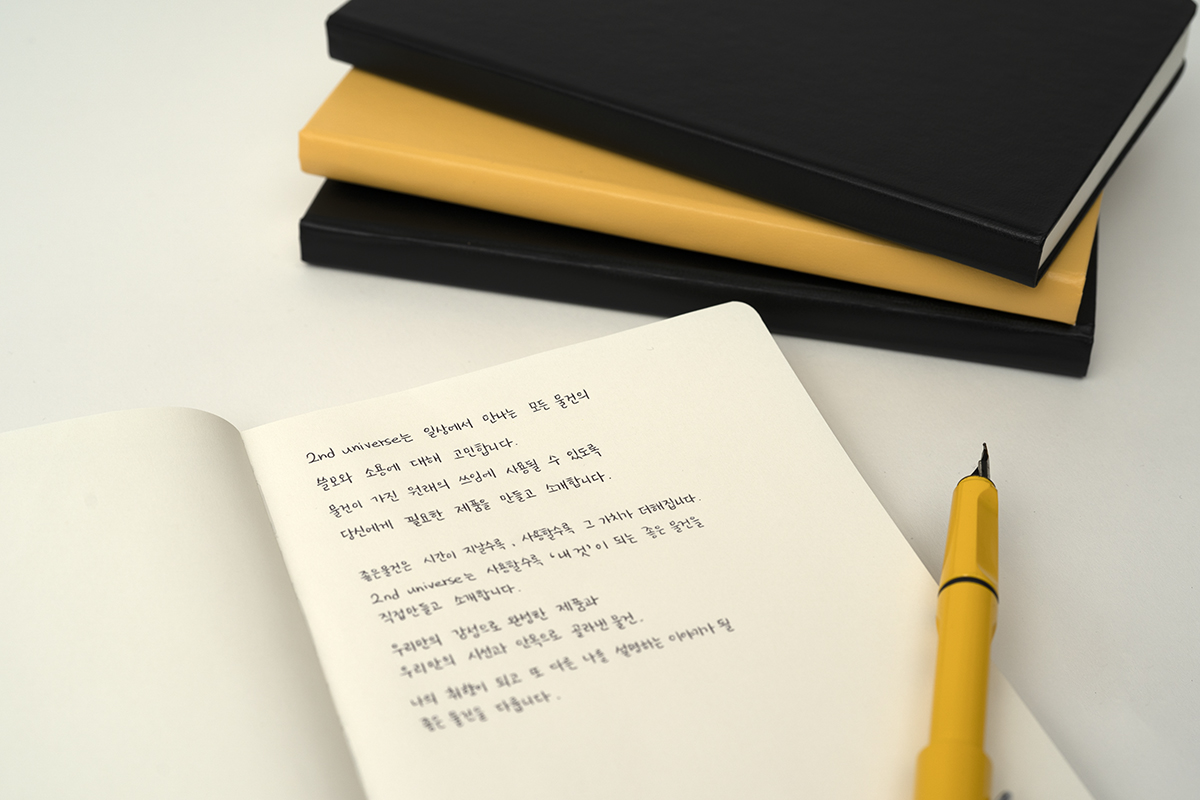 2nd universe는 일상에서 만나는 모든 물건의
쓸모와 소용에 대해 고민합니다.
물건이 가진 원래의 쓰임에 사용될 수 있도록
당신에게 필요한 제품을 만들고 소개합니다.
좋은물건은 시간이 지날수록, 사용할수록 그 가치가 더해집니다.
2nd universe는 사용할수록 '내것'이 되는 좋은 물건을
직접만들고 소개합니다.
우리만의 감성으로 완성한 제품과
우리만의 시선과 안목으로 골라낸 물건.
나의 취향이 되고 또 다른 나를 설명하는 이야기가 될
좋은 물건을 다룹니다.